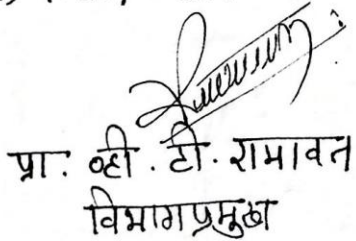 प्रा. व्ही. टी. रामावत
विभागप्रमुख